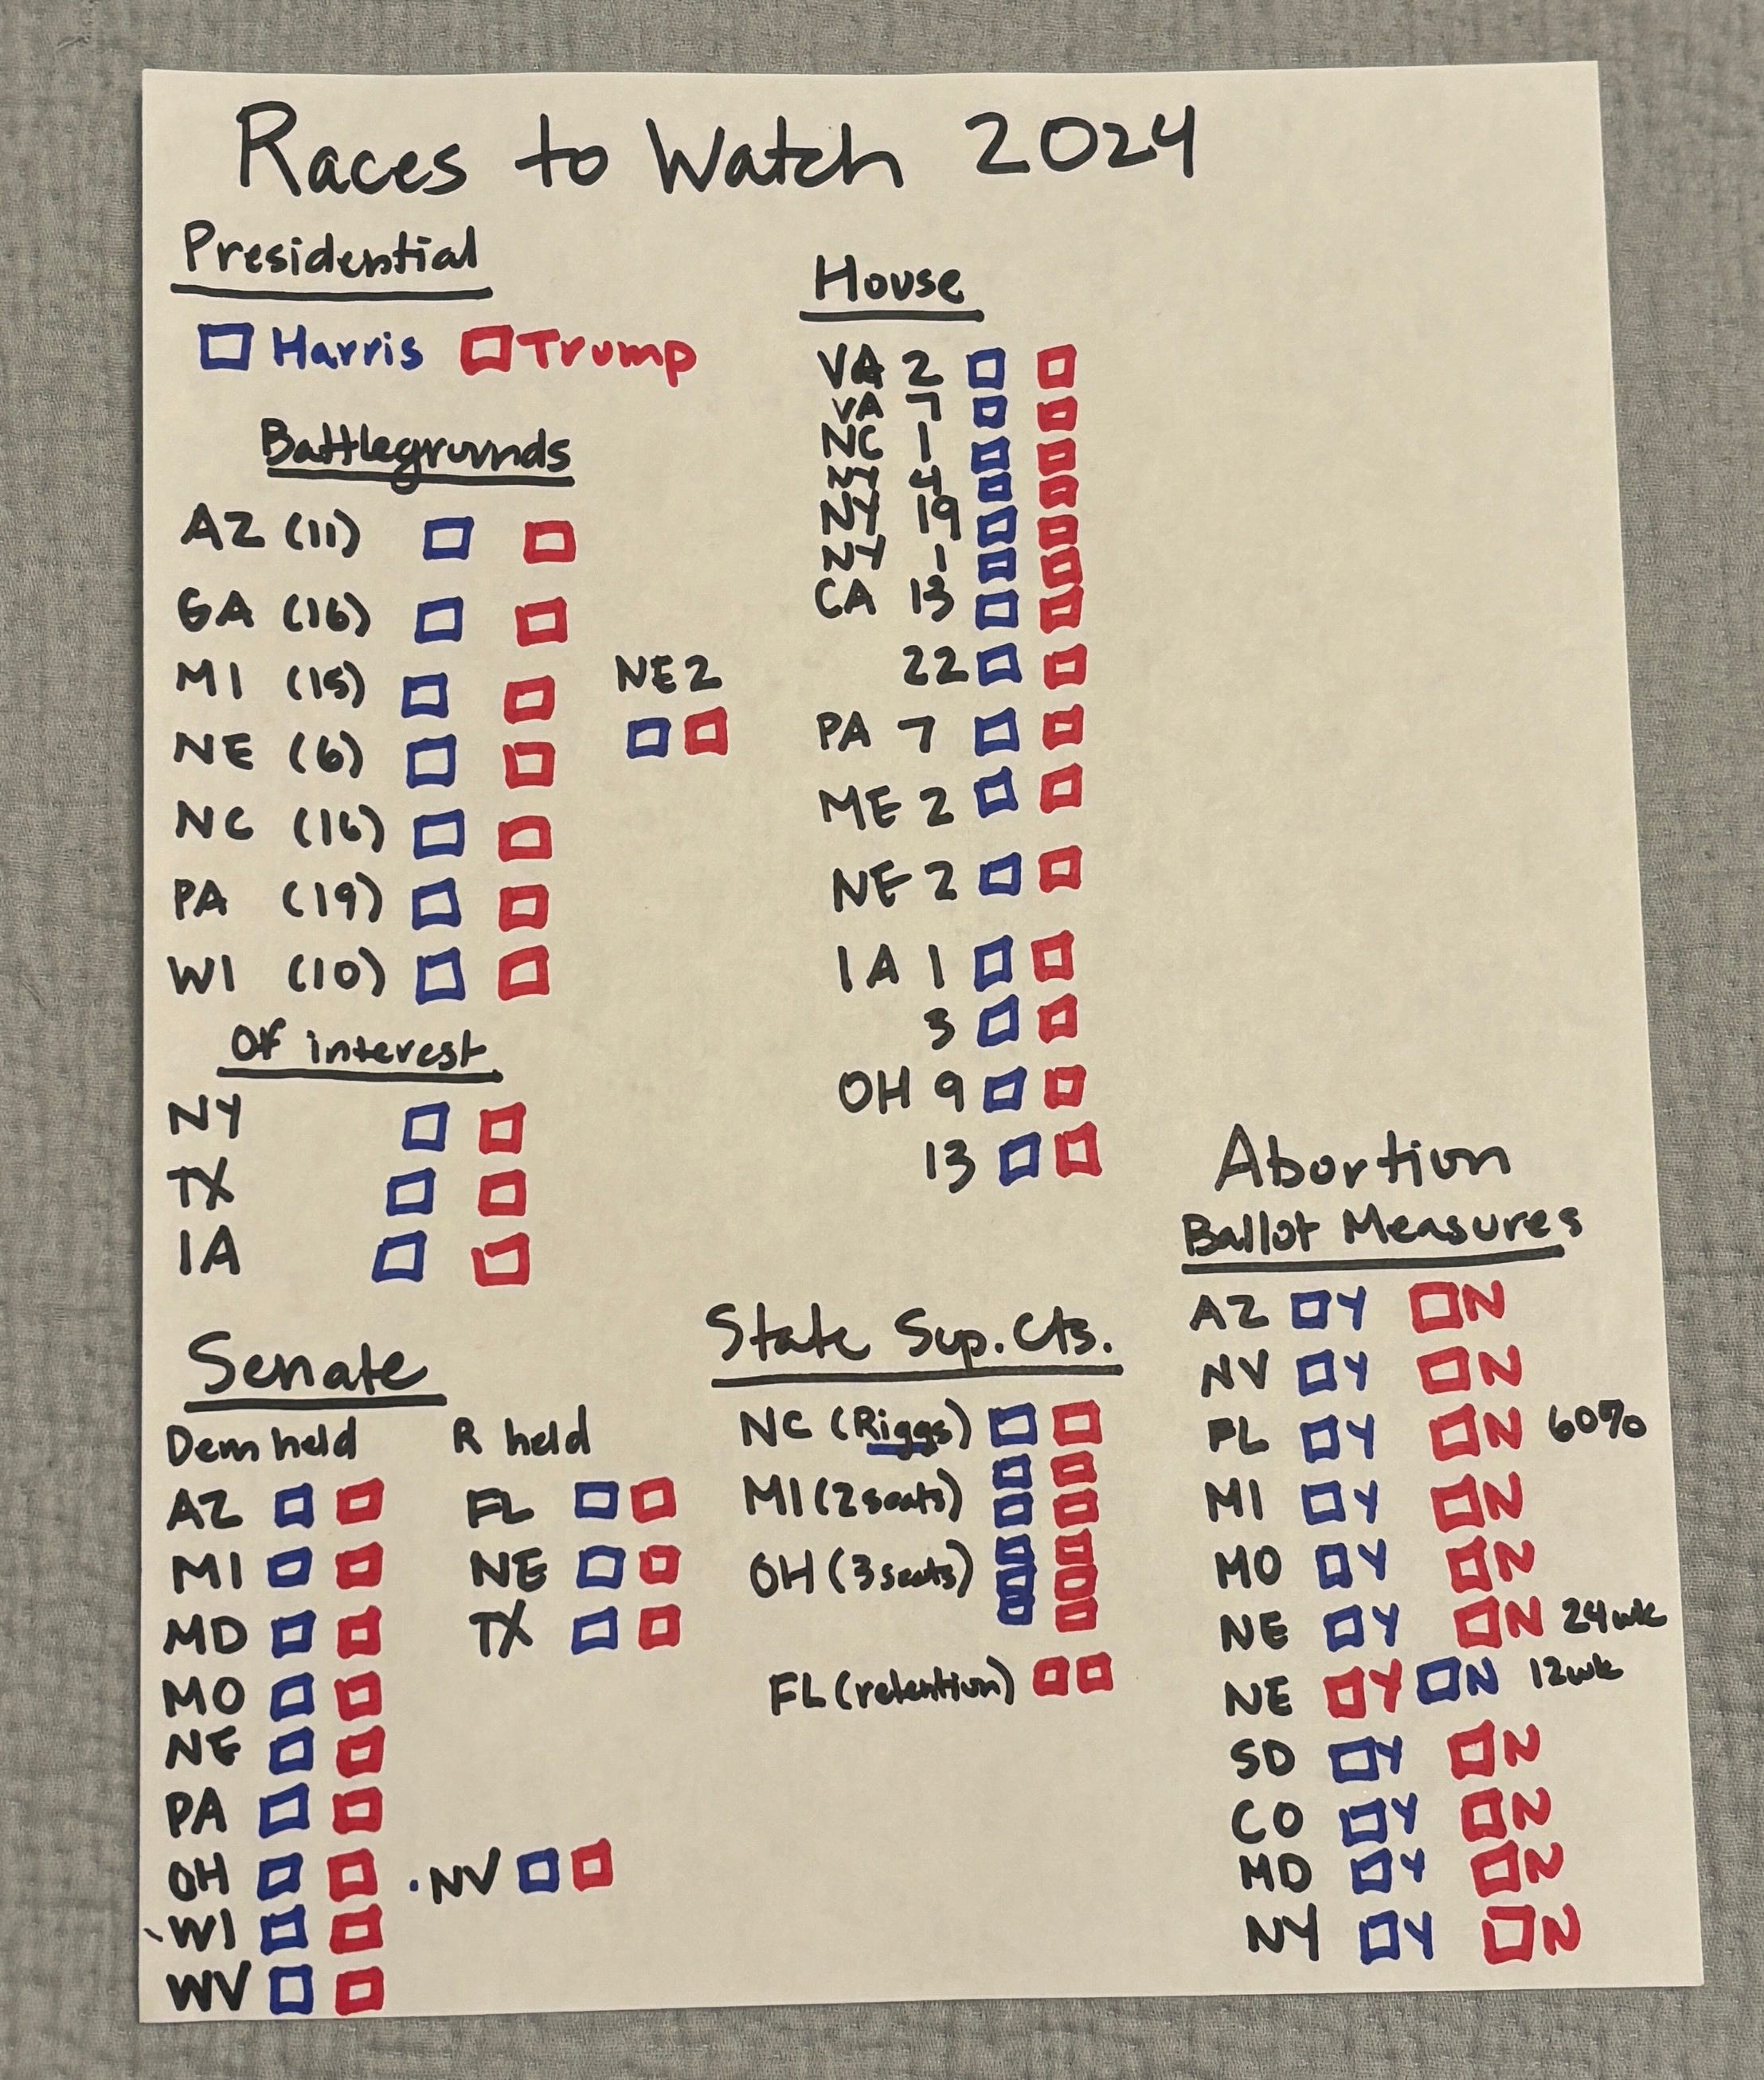 Races to Watch 2024
Presidential
Harris Trump
Battlegrounds
AZ (11)
GA (16)
MI (15)
NE (6)
NE 2
NC (16)
PA (19)
WI (10)
Of interest
NY
TX
IA
House
VA 2
VA 7
NC 1
NY 4
NY 19
NY 1
CA 13
22
PA 7
ME 2
NE 2
IA 1
3
OH 9
13
Senate
Dem held
AZ
MI
MD
MO
NE
PA
OH
WI
WV
R held
FL
NE
TX
NV
State Sup. Cts.
NC (Riggs)
MI (2 seats)
OH (3 seats)
FL (retention)
Abortion
Ballot Measures
AZ Y N
NV Y N
FL Y N 60%
MI Y N
MO Y N
NE Y N 24wk
NE Y N 12wk
SD Y N
CO Y N
MD Y N
NY Y N